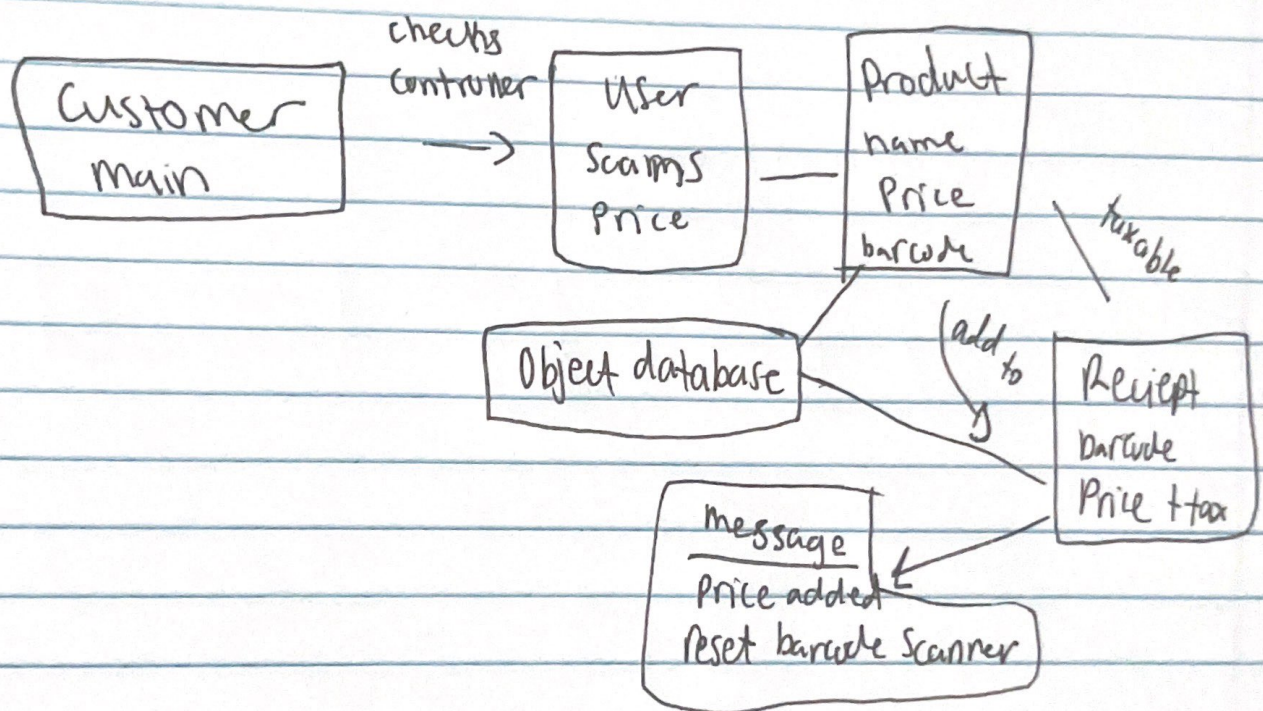 Customer
main
checks
controller
User
Scanns
Price
Product
name
Price
barcode
taxable
Object database
add
to
Reciept
barcode
Price + tax
message
Price added
reset barcode scanner